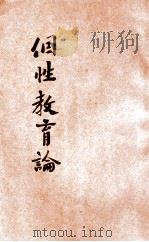 個性教育論
www.mtoou.info